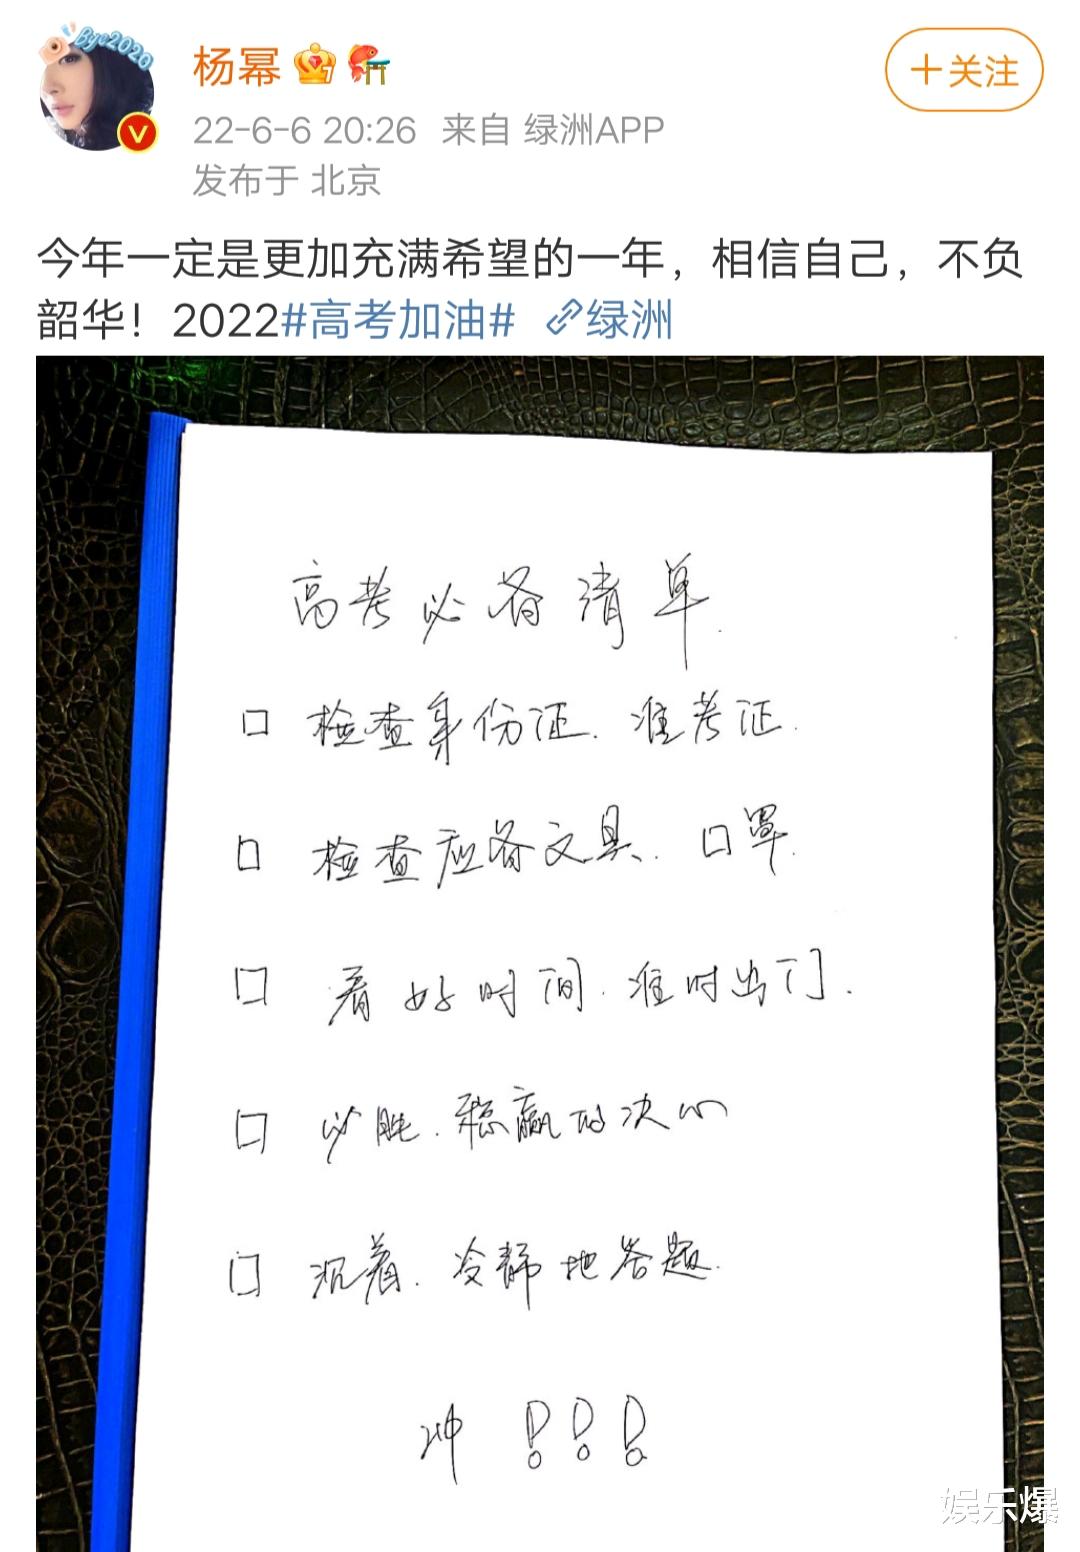 Bye2020
杨幂
+关注
22-6-6 20:26 来自 绿洲APP
发布于 北京
今年一定是更加充满希望的一年，相信自己，不负
韶华！2022#高考加油# 绿洲
高考必备清单.
检查身份证.准考证.
检查应备文具.口罩.
看好时间.准时出门.
必胜.稳赢的决心
沉着.冷静地答题.
冲!!!
娱乐爆